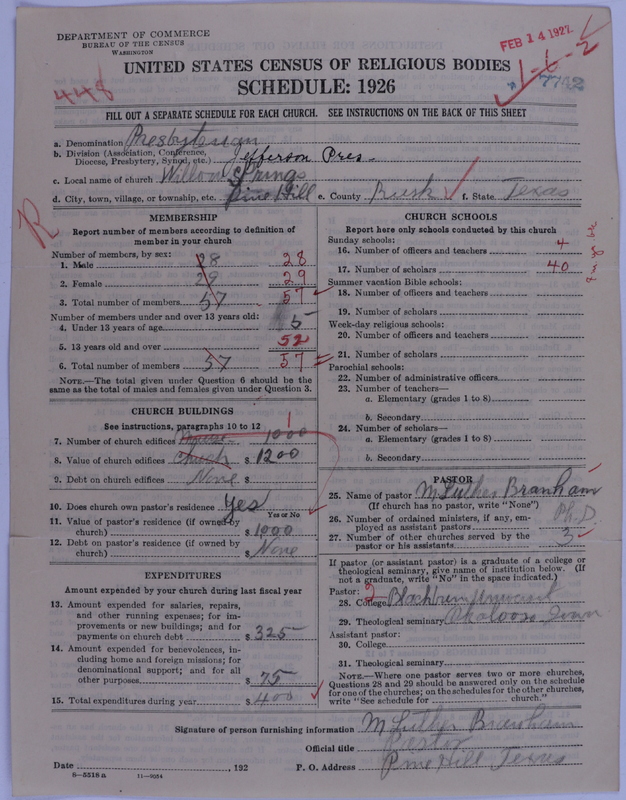 DEPARTMENT OF COMMERCE
BUREAU OF THE CENSUS
WASHINGTON
FEB 14 1927
1-6-2
7742
448
UNITED STATES CENSUS OF RELIGIOUS BODIES
SCHEDULE: 1926
FILL OUT A SEPARATE SCHEDULE FOR EACH CHURCH. SEE INSTRUCTIONS ON THE BACK OF THIS SHEET
a. Denomination Presbyterian
b. Division (Association, Conference, Diocese, Presbytery, Synod, etc.) Jefferson Pres-
c. Local name of church Willow Springs
d. City, town, village, or township, etc. Pine Hill e. County Rusk f. State Texas
R
MEMBERSHIP
Report number of members according to definition of member in your church
Number of members, by sex:
1. Male 28 28
2. Female 29 29
3. Total number of members 57 57
Number of members under and over 13 years old:
4. Under 13 years of age 5
5. 13 years old and over 52
6. Total number of members 57 57
NOTE.—The total given under Question 6 should be the same as the total of males and females given under Question 3.
CHURCH BUILDINGS
See instructions, paragraphs 10 to 12
7. Number of church edifices 1 1000
8. Value of church edifices Church $ 1200
9. Debt on church edifices None $
10. Does church own pastor's residence Yes
Yes or No
11. Value of pastor's residence (if owned by church) $ 1000
12. Debt on pastor's residence (if owned by church) $ None
EXPENDITURES
Amount expended by your church during last fiscal year
13. Amount expended for salaries, repairs, and other running expenses; for improvements or new buildings; and for payments on church debt $ 325
14. Amount expended for benevolences, including home and foreign missions; for denominational support; and for all other purposes $ 75
15. Total expenditures during year $ 400
CHURCH SCHOOLS
Report here only schools conducted by this church
Sunday schools:
16. Number of officers and teachers 4
17. Number of scholars 40
Summer vacation Bible schools:
18. Number of officers and teachers
19. Number of scholars
Week-day religious schools:
20. Number of officers and teachers
21. Number of scholars
Parochial schools:
22. Number of administrative officers
23. Number of teachers—
a. Elementary (grades 1 to 8)
b. Secondary
24. Number of scholars—
a. Elementary (grades 1 to 8)
b. Secondary
PASTOR
25. Name of pastor M Luther Branham
(If church has no pastor, write "None") Ph. D.
26. Number of ordained ministers, if any, employed as assistant pastors
27. Number of other churches served by the pastor or his assistants 3
If pastor (or assistant pastor) is a graduate of a college or theological seminary, give name of institution below. (If not a graduate, write "No" in the space indicated.)
Pastor: 2
28. College Blackburn
29. Theological seminary
Assistant pastor:
30. College
31. Theological seminary
NOTE.—Where one pastor serves two or more churches, Questions 28 and 29 should be answered only on the schedule for one of the churches; on the schedules for the other churches, write "See schedule for church."
Signature of person furnishing information M Luther Branham
Official title Pastor
Date , 192 P. O. Address Pine Hill Texas
8—5518 a 11—9554